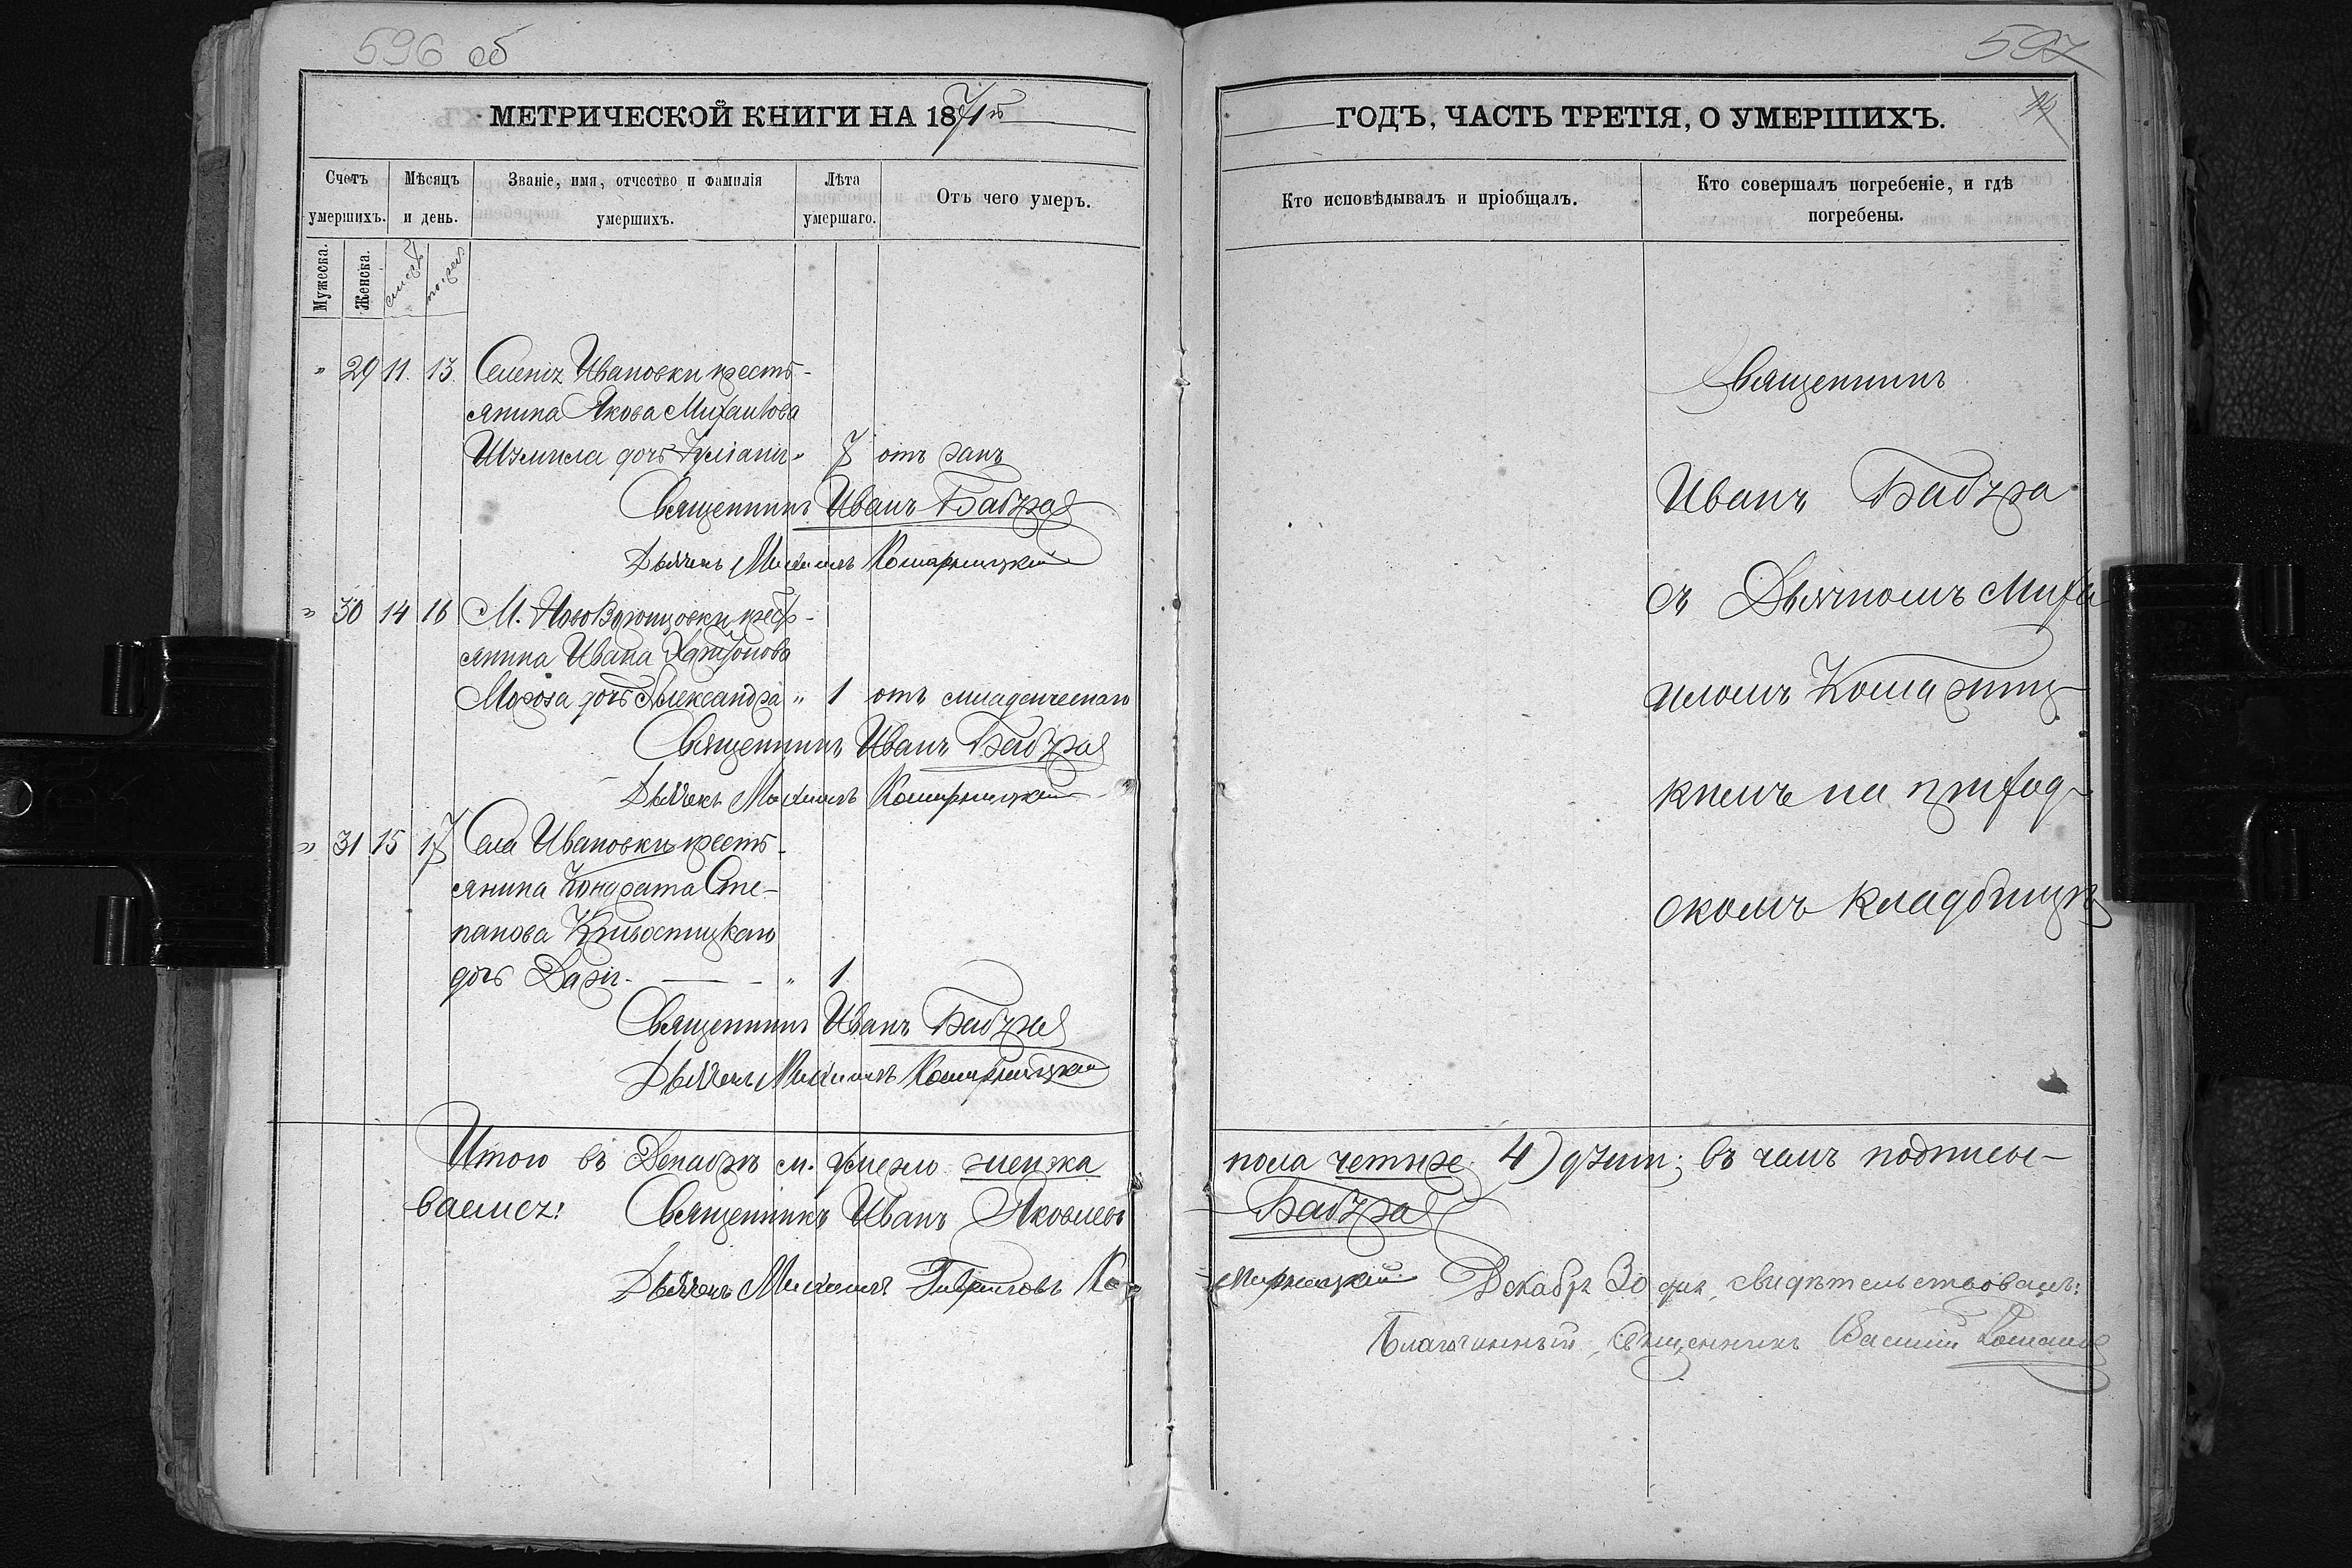 596 об
МЕТРИЧЕСКОЙ КНИГИ НА 1871й
Счетъ умершихъ.
Мѣсяцъ и день.
Званіе, имя, отчество и фамилія умершихъ.
Лѣта умершаго.
Отъ чего умеръ.
Мужеска.
Женска.
" 29 11. 13. Селенія Ивановки кресть-
янина Якова Михайлова
дочь " 7 отъ ранъ
Священникъ Иванъ Бабура
Дьячекъ Михаилъ Кошарницкій
" 30 14 16 М. Нововоронцовки крест-
янина Ивана Харитонова
Мороза дочь Александра " 1 отъ младенческаго
Священникъ Иванъ Бабура
Дьячекъ Михаилъ Кошарницкій
" 31 15 17 Села Ивановки кресть-
янина Кондрата Сте-
панова
дочь Дарія - " 1
Священникъ Иванъ Бабура
Дьячекъ Михаилъ Кошарницкій
Итого въ Декабрѣ м. умерло женска
ваемся:
Священникъ Иванъ Яковлевъ
Дьячекъ Михаилъ Гавриловъ Ко-
597
ГОДЪ, ЧАСТЬ ТРЕТІЯ, О УМЕРШИХЪ.
Кто исповѣдывалъ и пріобщалъ.
Кто совершалъ погребеніе, и гдѣ погребены.
Священникъ
Иванъ Бабура
съ Дьячкомъ Миха
иломъ Кошарниц-
кимъ на приход-
скомъ кладбищѣ
пола четыре 4) души; въ чемъ подписы-
Бабура
шарницкій Декабря 30 дня, свидѣтельствовалъ:
Благочинный, Священникъ Василій